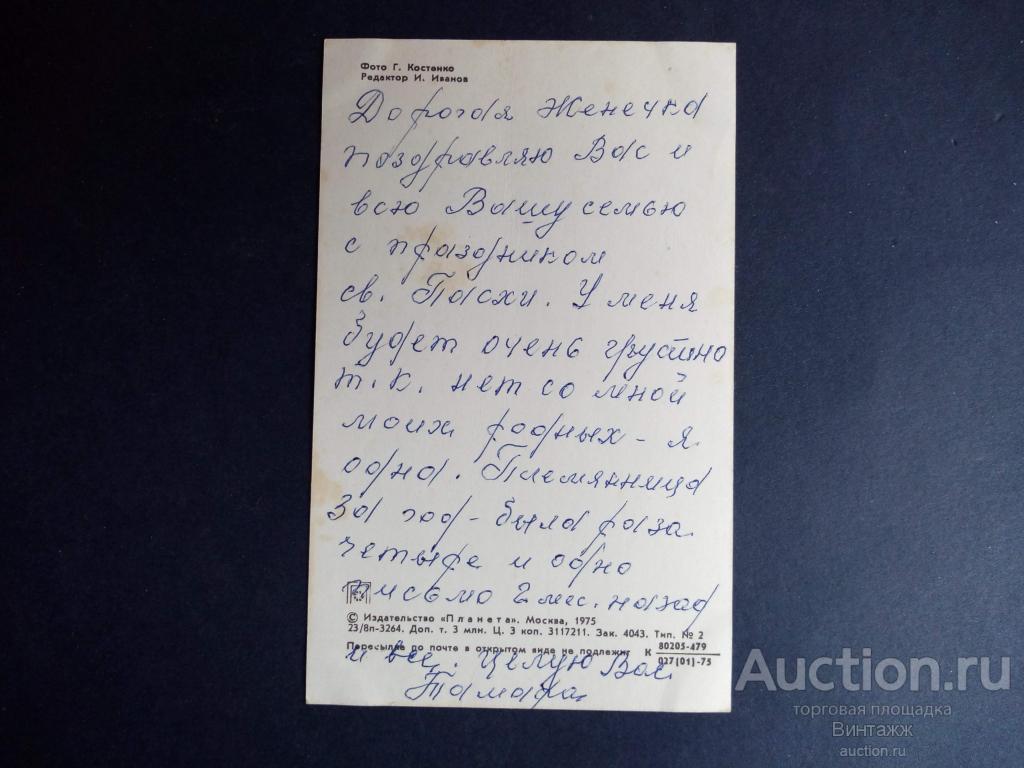 Фото Г. Костенко
Редактор И. Иванов
Дорогая Женечка
поздравляю Вас и
всю Вашу семью
с праздником
св. Пасхи. У меня
будет очень грустно
т.к. нет со мной
моих родных - я
одна. Племянница
за год - была раза
четыре и одно
письмо 2 мес. назад
© Издательство «Планета». Москва, 1975
23/8п-3264. Доп. т. 3 млн. Ц. 3 коп. 3117211. Зак. 4043. Тип. № 2
Пересылке по почте в открытом виде не подлежит К 80205-479
027(01)-75
и все. Целую Вас.
Тамара.
Auction.ru
торговая площадка
Винтажж
auction.ru